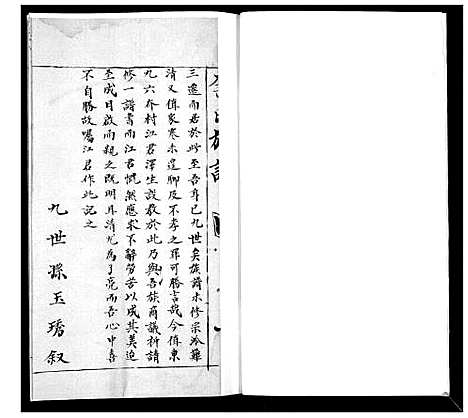 三遷而居於此至吾身已九世矣族譜未修宗派難
清又值家寒未遑聊及不孝之罪可勝言哉今值東
九六乔村江君澤生設教於此乃與吾族商議祈請
修一譜書而江君慨然應承不辭勞苦以成其美迨
至成日啟而觀之既明且清尤為了亮而吾心中喜
不自勝故囑江君作此記之
九世孫玉璠叙
氏族譜